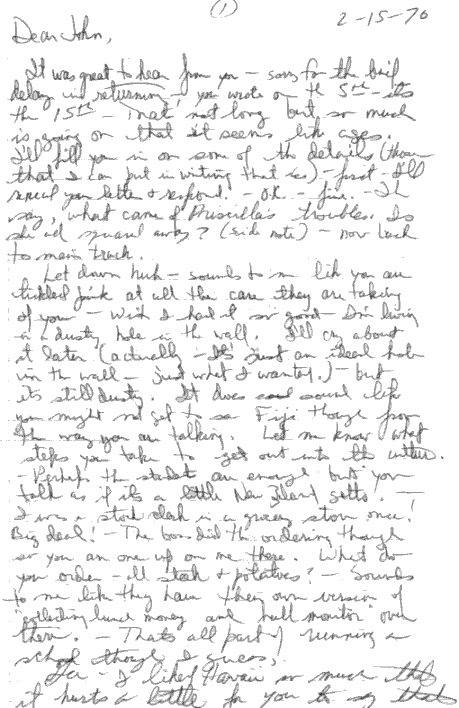 1
2-15-70
Dear John,
It was great to hear from you - sorry for the brief
delay in returning! you wrote on th 5th - its
the 15th - that not long but so much
is going on that it seems like ages.
I'll fill you in on some of the details (those
that I can put in writing that is) - first - I'll
reread you letter & respond. - OK. - fine. - I'll
say, what came of Priscilla's troubles. Is
she all squared away? (side note) - now back
to main track.
Let down huh - sounds to me like you are
tickled pink at all the care they are taking
of you - Wish I had it so good - I'm living
in a dusty hole in the wall. I'll cry about
it later (actually - It's just an ideal hole
in the wall - just what I wanted.) - but
it's still dusty. It does sound like
you might not get to see Fiji though from
the way you are talking. Let me know what
steps you take to get out into the culture.
- Perhaps the students are enough but you
talk as if its a little New Zeland
I was a stock clerk in a grocery store once!
Big deal! - The boss did the ordering though
so you are one up on me there. What do
you order - all steak & potatoes? - Sounds
to me like they have their own version of
"collecting lunch money and hall monitor" over
there. - Thats all part of running a
school though I guess,
I liked Hawaii so much that
it hurts a little for you to say that